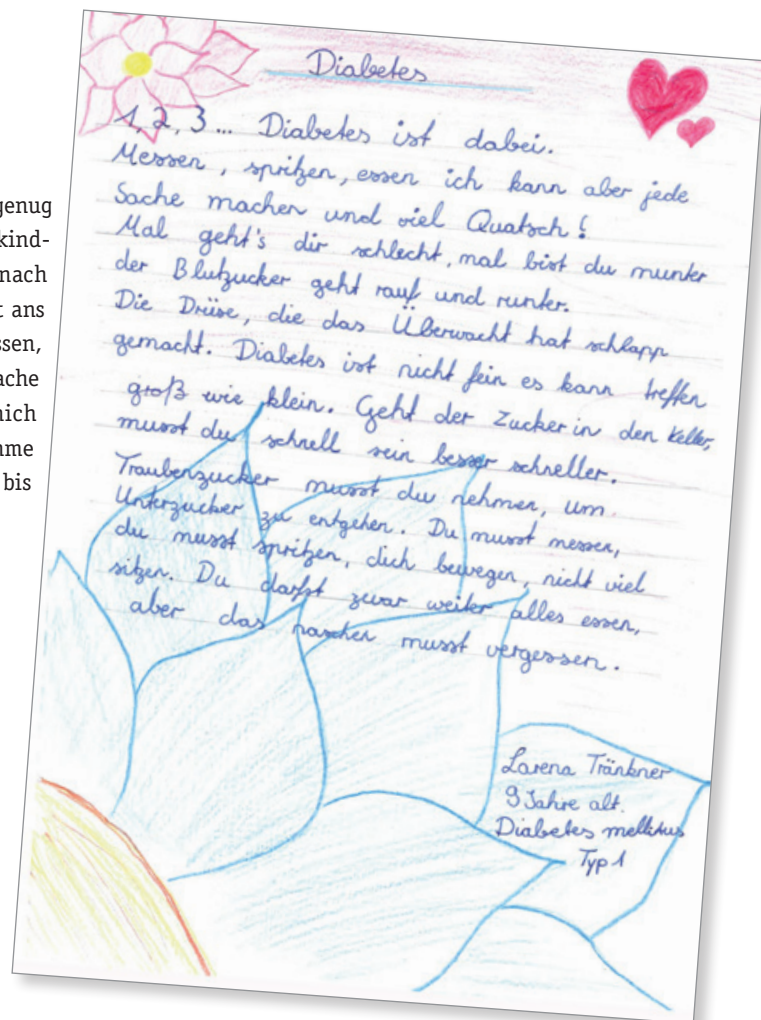 genug
kind-
nach
t ans
ssen,
ache
nich
hme
bis
Diabetes
1, 2, 3... Diabetes ist dabei.
Messen, spritzen, essen ich kann aber jede
Sache machen und viel Quatsch!
Mal geht's dir schlecht, mal bist du munter
der Blutzucker geht rauf und runter.
Die Drüse, die das Überwacht hat schlapp
gemacht. Diabetes ist nicht fein es kann treffen
groß wie klein. Geht der Zucker in den Keller,
musst du schnell sein besser schneller.
Traubenzucker musst du nehmen, um
Unterzucker zu entgehen. Du musst messen,
du musst spritzen, dich bewegen, nicht viel
sitzen. Du darfst zwar weiter alles essen,
aber das naschen musst vergessen.
Larena Tränkner
9 Jahre alt.
Diabetes mellitus
Typ 1